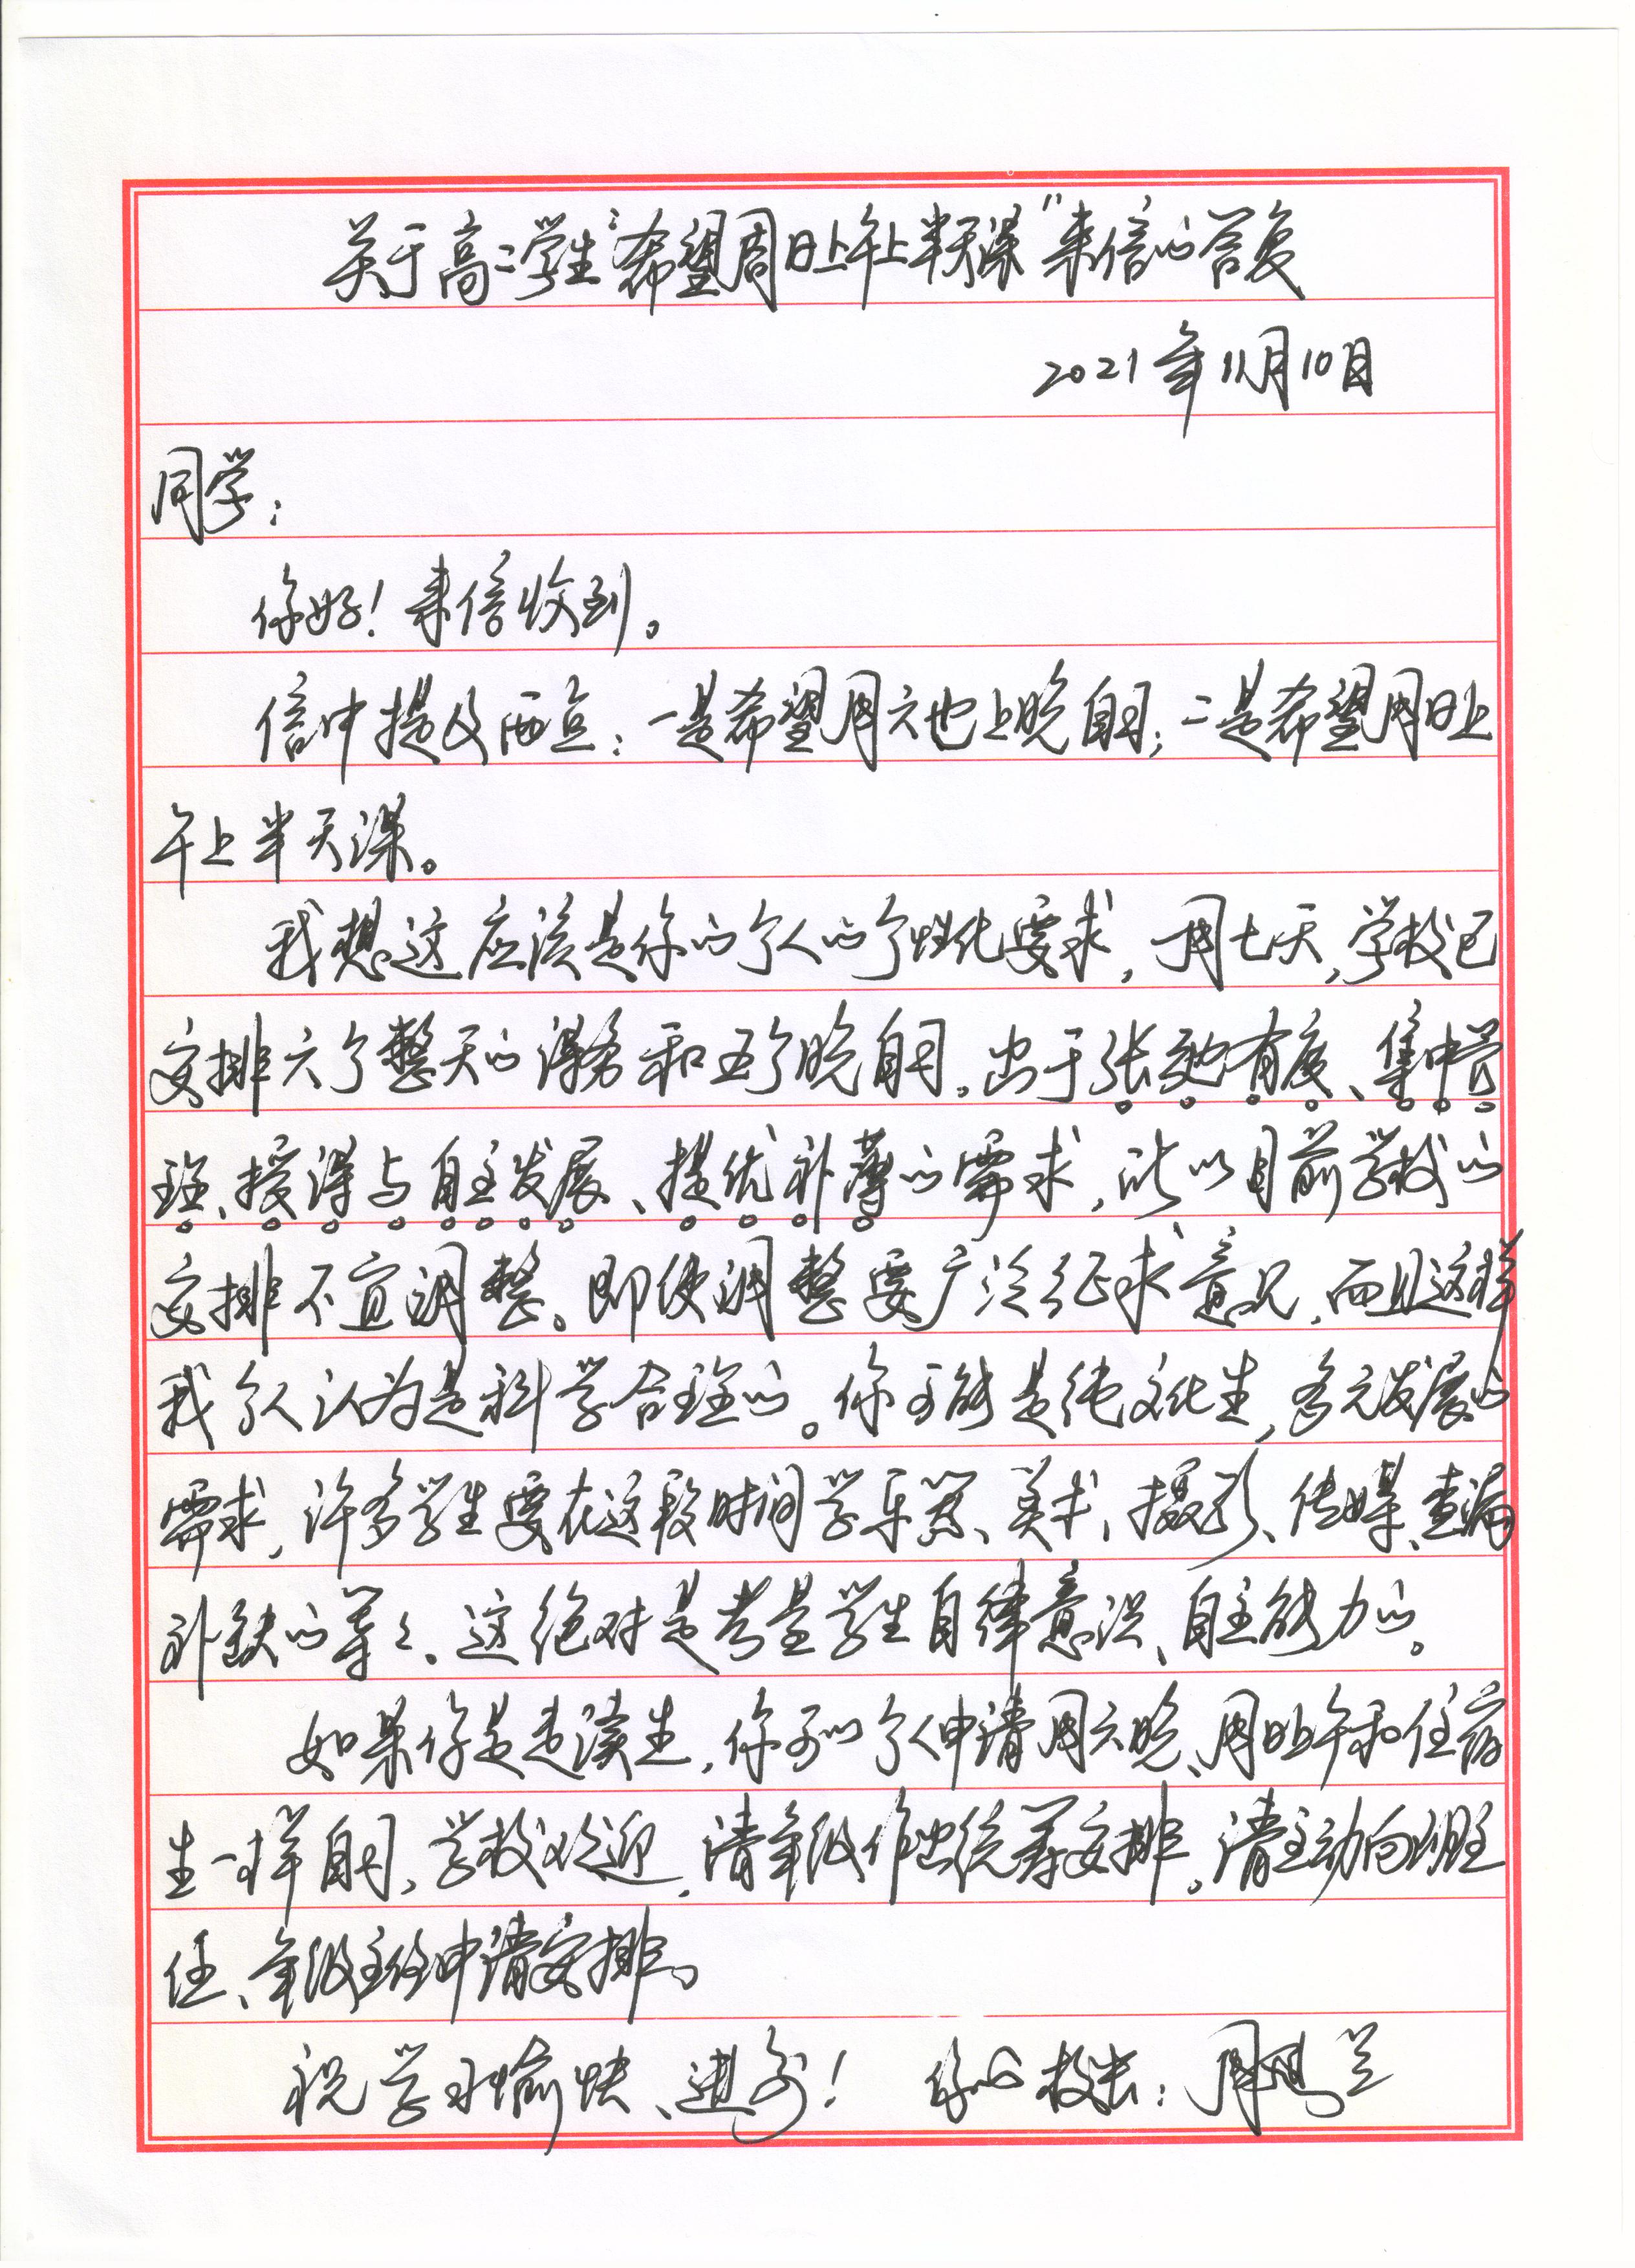 关于高二学生“希望周日上午上半天课”来信的答复
2021年11月10日
同学：
你好！来信收到。
信中提及两点：一是希望周六也上晚自习；二是希望周日上
午上半天课。
我想这应该是你的个人的个性化要求，一周七天，学校已
安排六个整天的课务和五个晚自习。出于张弛有度、集中管
理、授课与自主发展、提优补薄的需求，所以目前学校的
安排不宜调整。即使调整要广泛征求意见，而且这样
我个人认为是科学合理的。你可能是纯文化生，多元发展的
需求，许多学生要在这段时间学乐器、美术、摄影、传媒、查漏
补缺的等等、这绝对是考量学生自律意识、自主能力的。
如果你是走读生，你可以个人申请周六晚、周日上午和住宿
生一样自习，学校欢迎，请年级作出统筹安排。请主动向班主
任、年级主任申请安排。
祝学习愉快、进步！ 你的校长：周鹏兰